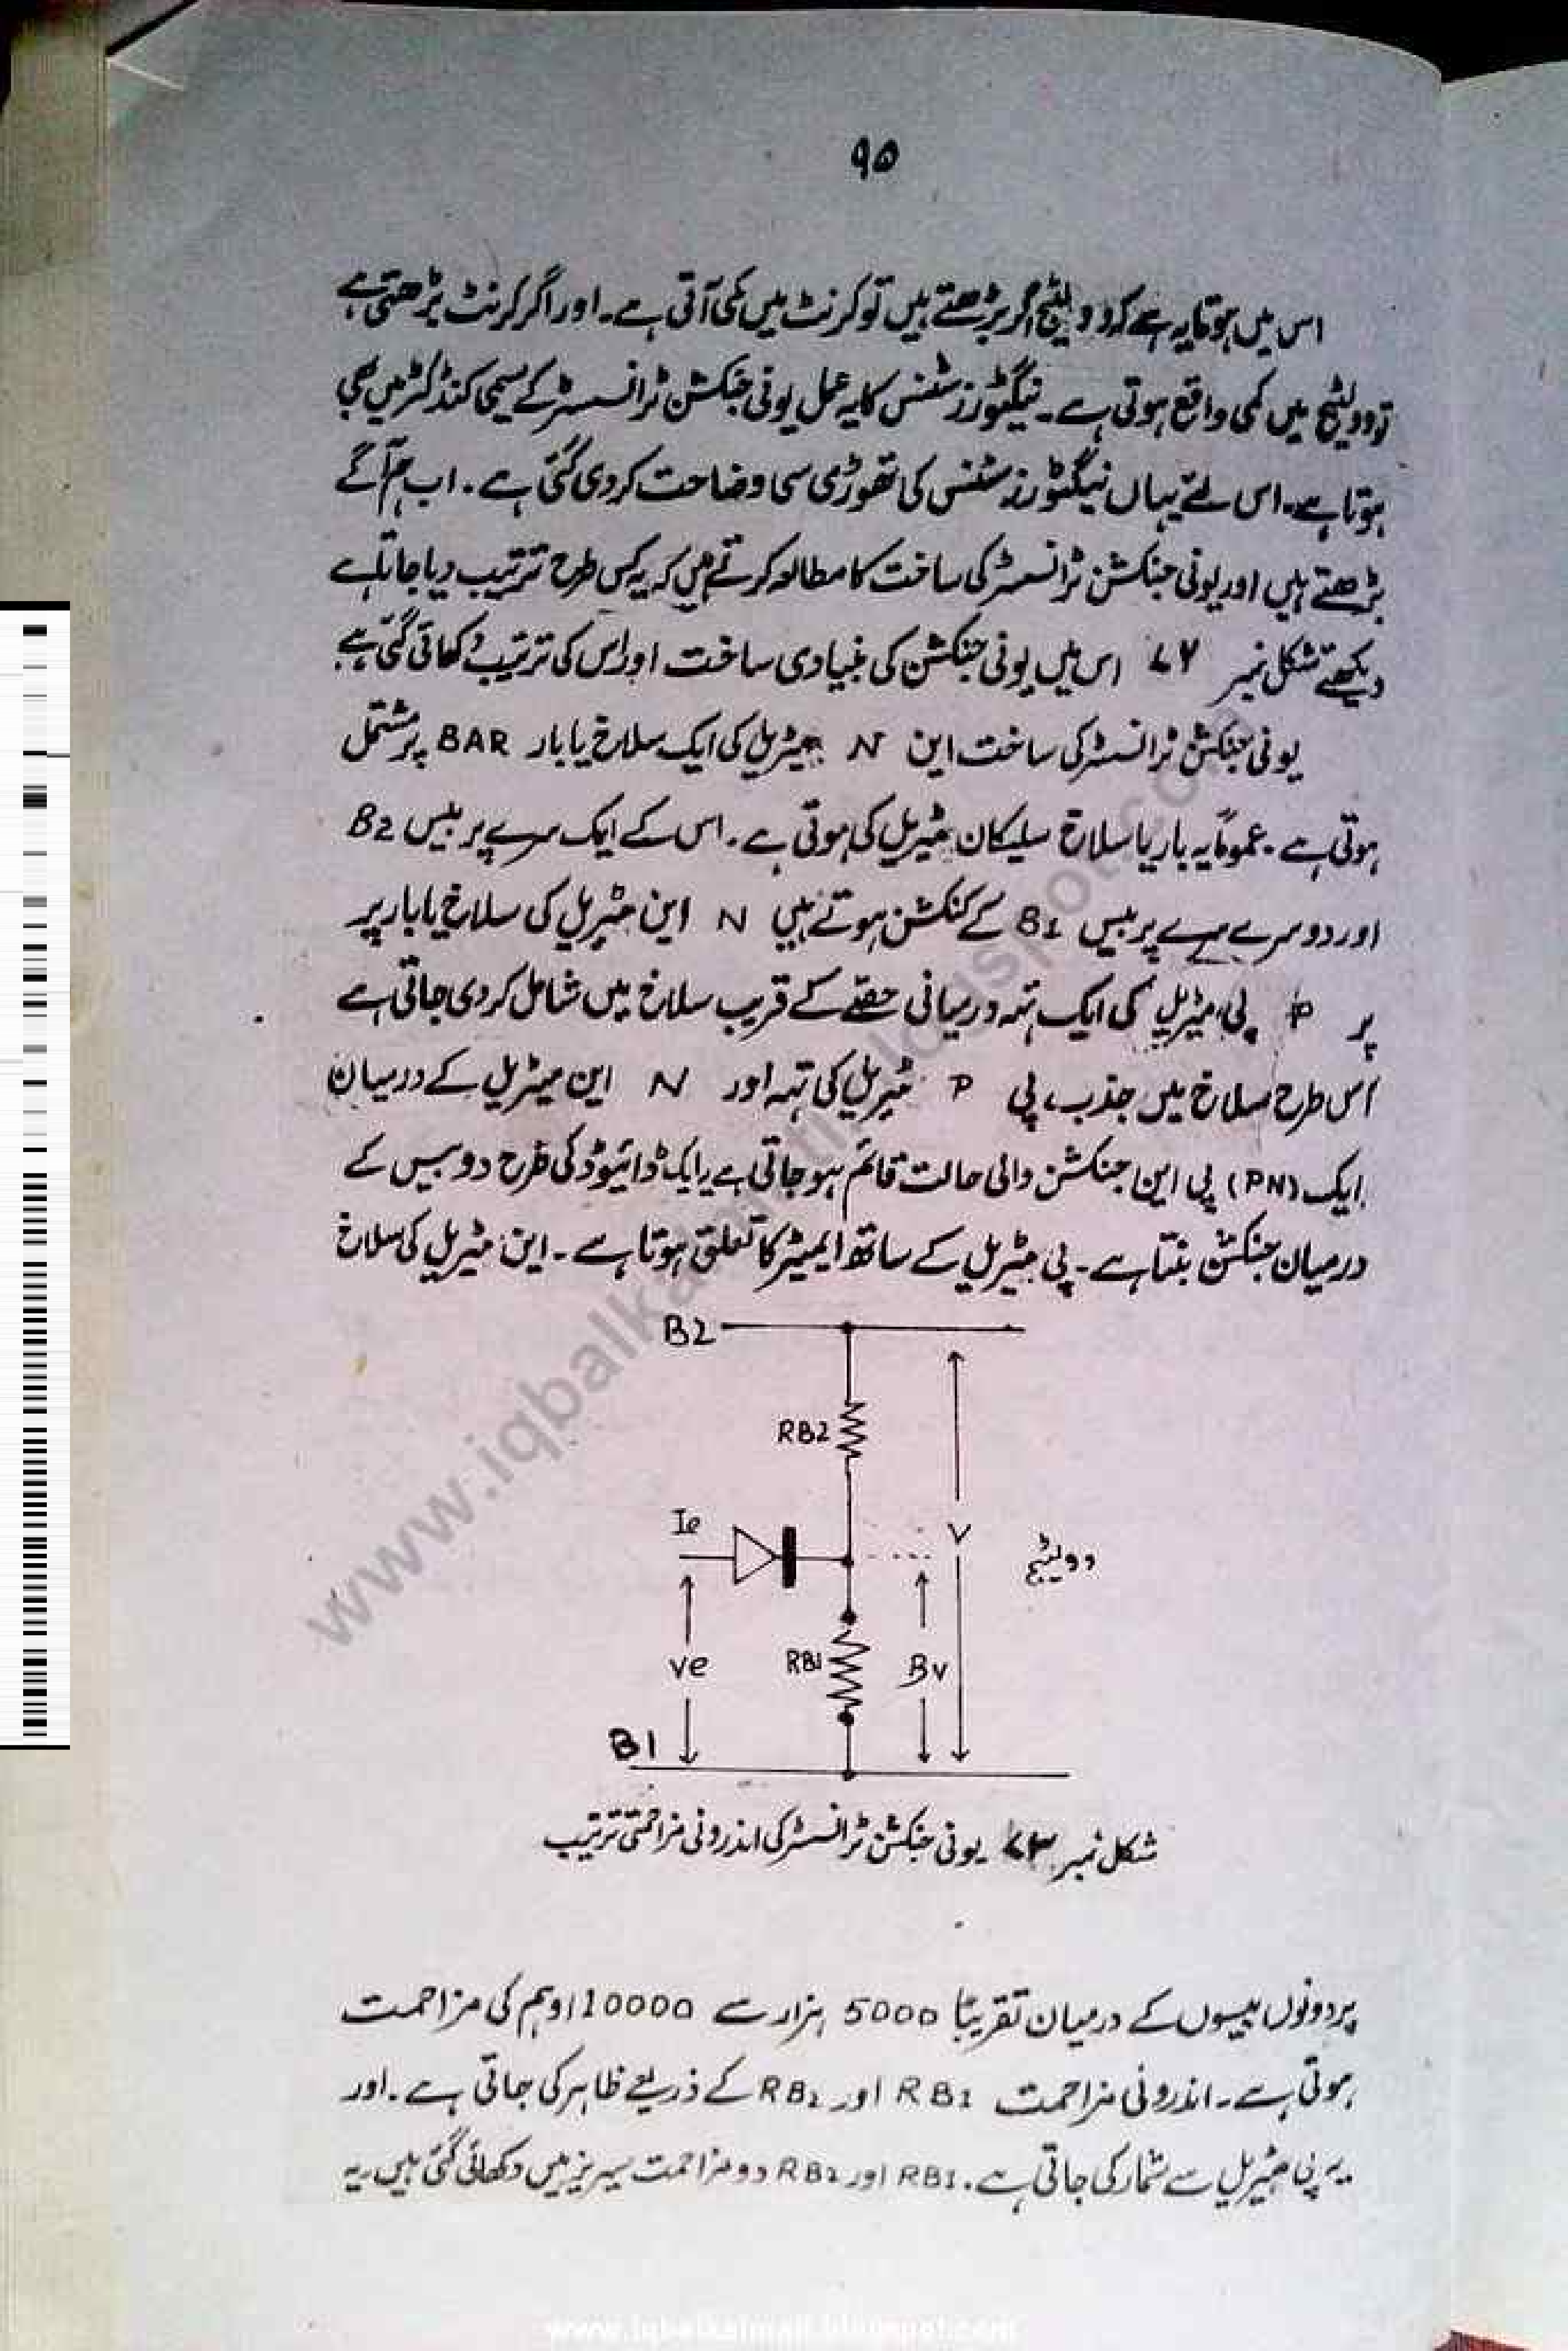 ۹۵
اس میں ہوتا یہ ہے کہ وولٹیج اگر بڑھتے ہیں تو کرنٹ میں کمی آتی ہے۔ اور اگر کرنٹ بڑھتی ہے
تو وولٹیج میں کمی واقع ہوتی ہے۔ نیگٹو رزسٹنس کا یہ عمل یونی جنکشن ٹرانسسٹر کے سیمی کنڈکٹر میں بھی
ہوتا ہے۔ اس لئے یہاں نیگٹو رزسٹنس کی تھوڑی سی وضاحت کر دی گئی ہے۔ اب ہم آگے
بڑھتے ہیں اور یونی جنکشن ٹرانسسٹر کی ساخت کا مطالعہ کرتے ہیں کہ یہ کس طرح ترتیب دیا جاتا ہے
دیکھتے شکل نمبر ۷۲ اس میں یونی جنکشن کی بنیادی ساخت اور اس کی ترتیب دکھائی گئی ہے
یونی جنکشن ٹرانسسٹر کی ساخت این N میٹریل کی ایک سلاخ یا بار BAR پر مشتمل
ہوتی ہے۔ عموماً یہ بار یا سلاخ سلیکان مٹیریل کی ہوتی ہے۔ اس کے ایک سرے پر بیس B2
اور دوسرے سرے پر بیس B1 کے کنکشن ہوتے ہیں N این مٹیریل کی سلاخ یا بار پر
پر P پی میٹریل کی ایک تہہ درمیانی حصے کے قریب سلاخ میں شامل کر دی جاتی ہے
اس طرح سلاخ میں جذب پی P مٹیریل کی تہہ اور N این میٹریل کے درمیان
ایک (PN) پی این جنکشن والی حالت قائم ہو جاتی ہے یا ایک ڈائیوڈ کی طرح دو بیس کے
درمیان جنکشن بنتا ہے۔ پی مٹیریل کے ساتھ ایمیٹر کا تعلق ہوتا ہے۔ این مٹیریل کی سلاخ
B2
RB2
Ie
V
وولٹیج
Ve
RB1
Bv
B1
شکل نمبر ۷۳ یونی جنکشن ٹرانسسٹر کی اندرونی مزاحمتی ترتیب
پر دونوں بیسوں کے درمیان تقریباً 5000 ہزار سے 10000 اوہم کی مزاحمت
ہوتی ہے۔ اندرونی مزاحمت RB1 اور RB2 کے ذریعے ظاہر کی جاتی ہے۔ اور
یہ پی مٹیریل سے شمار کی جاتی ہے۔ RB1 اور RB2 دو مزاحمت سیریز میں دکھائی گئی ہیں یہ
www.iqbalkalmati.blogspot.com
www.iqbalkalmati.blogspot.com